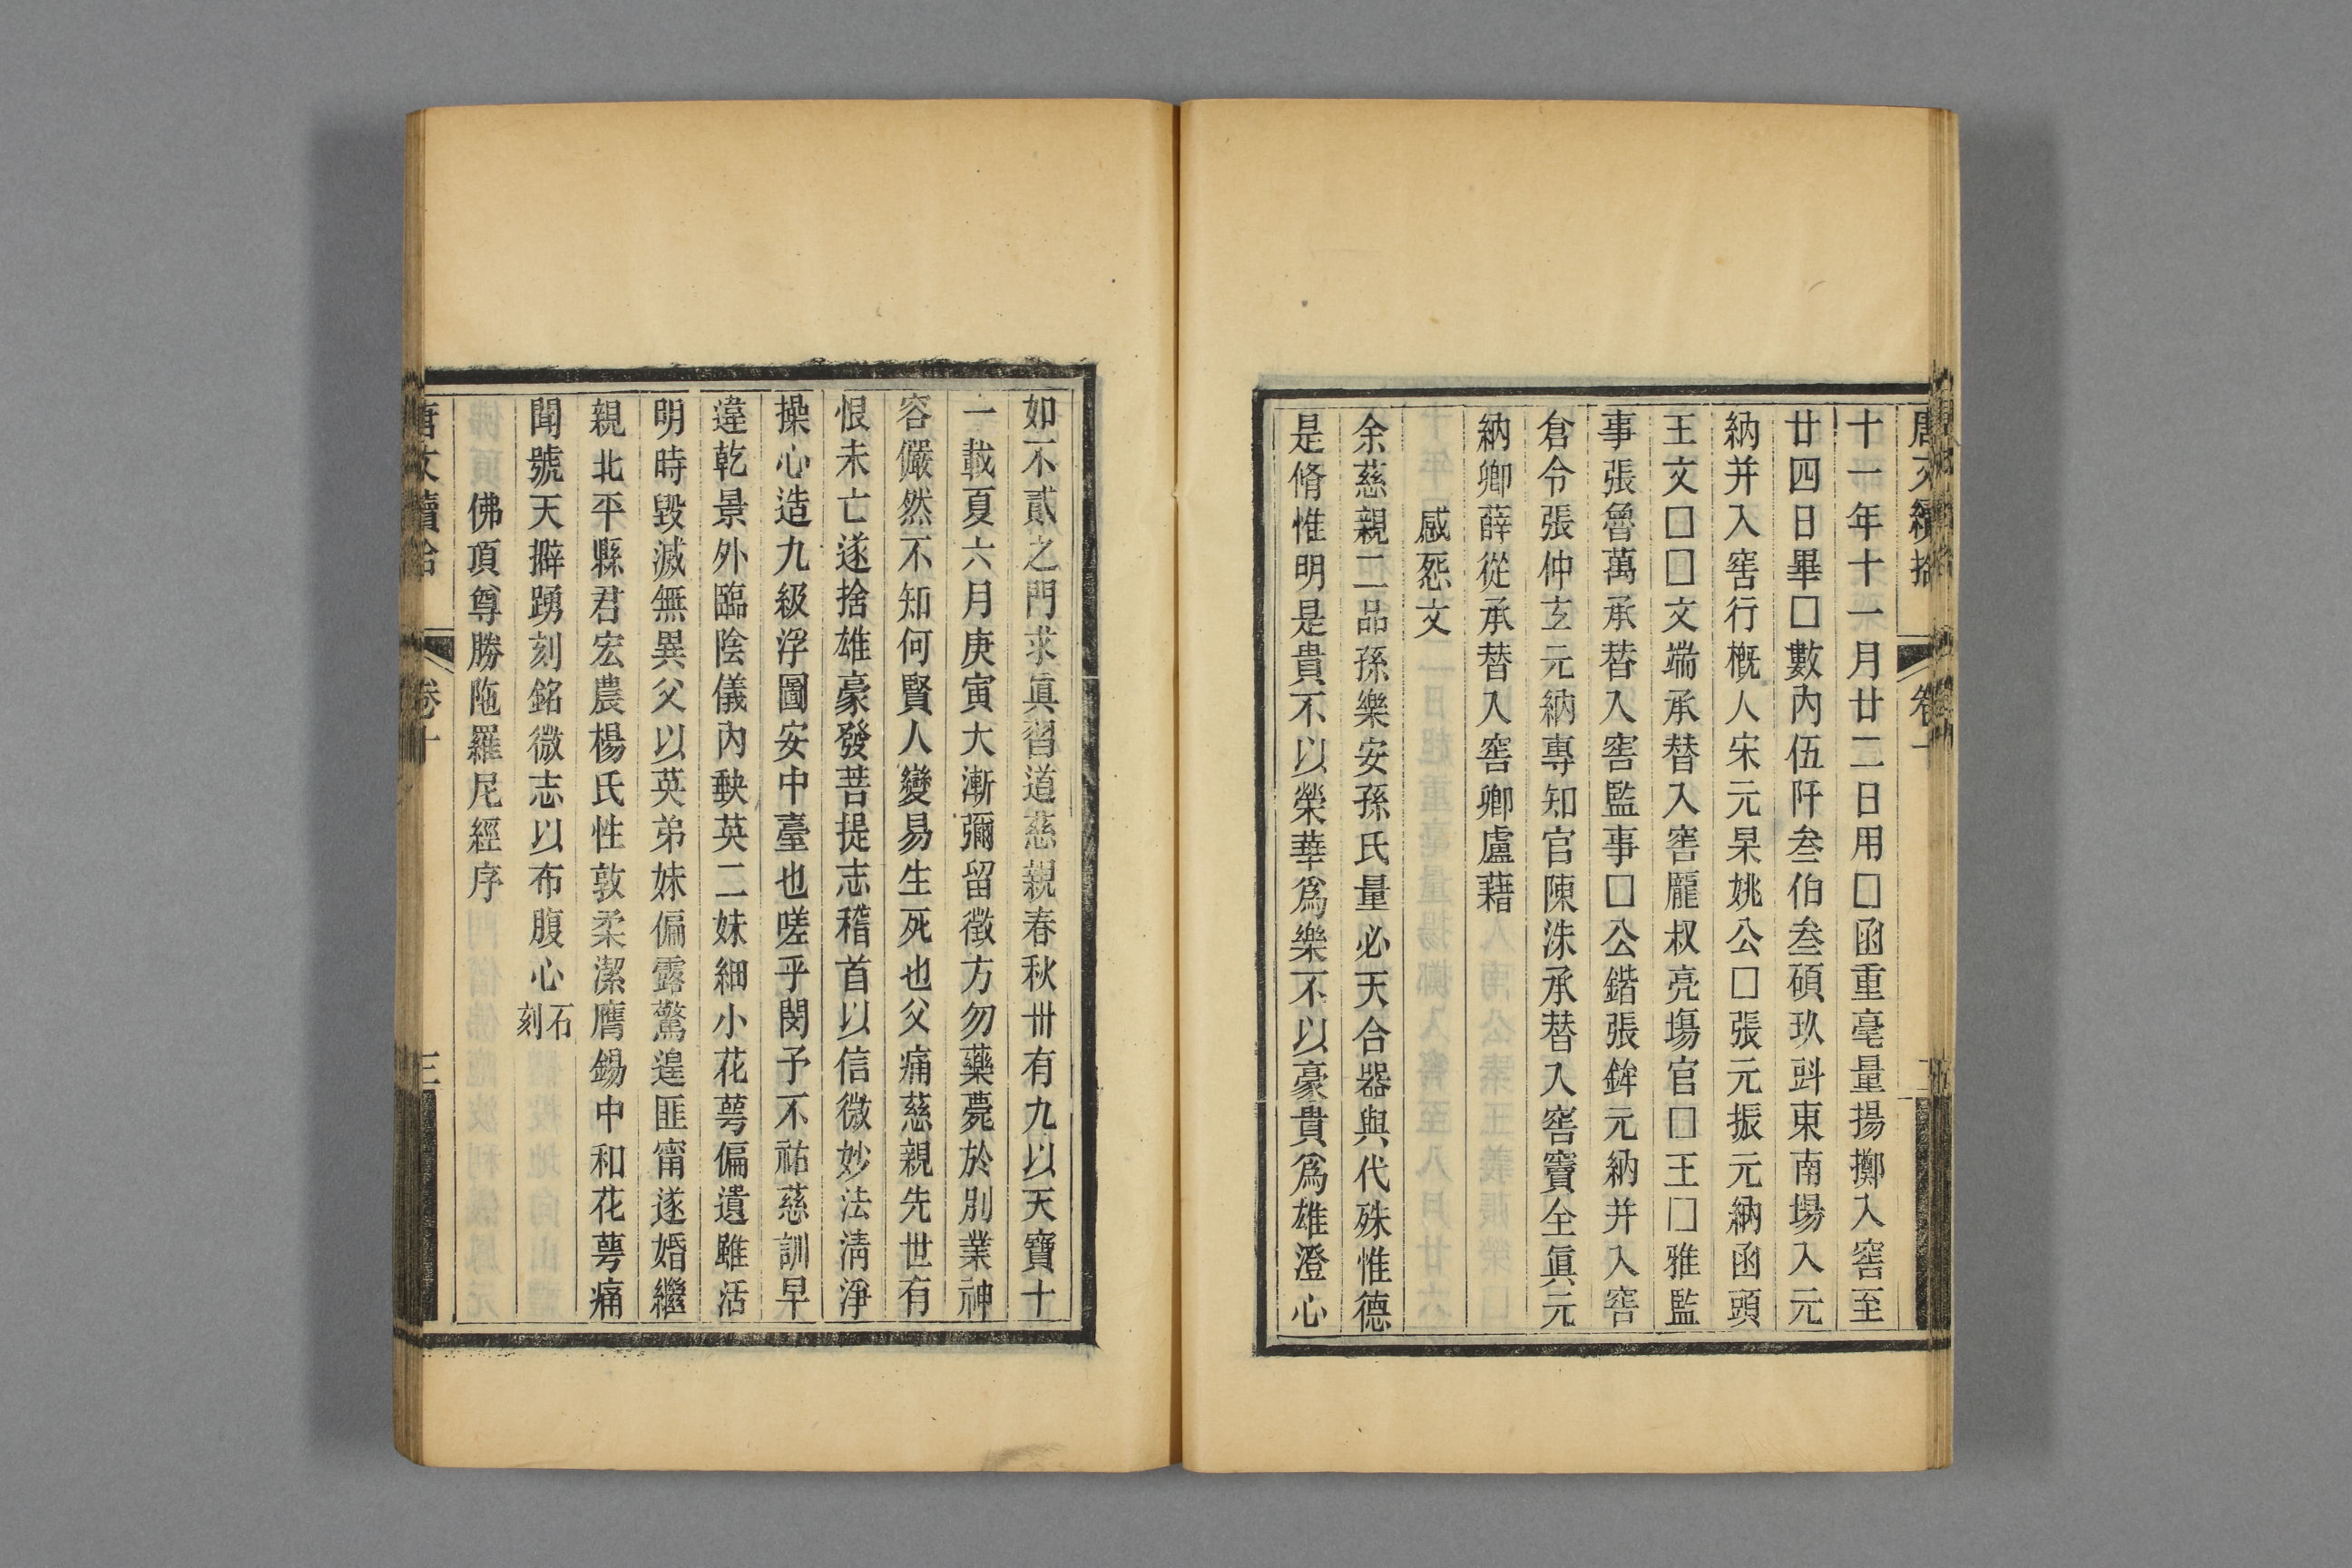 唐文續拾 卷十
十一年十一月廿二日用□函重亳量揚擲入窖至
廿四日畢□數內伍阡叁伯叁碩玖㪷東南場入元
納并入窖行槪人宋元杲姚公□張元振元納函頭
王文□□文端承替入窖龐叔亮塲官□王□雅監
事張魯萬承替入窖監事□公鍇張鉾元納并入窖
倉令張仲玄元納專知官陳洙承替入窖竇全眞元
納卿薛從承替入窖卿盧藉
感怨文
余慈親二品孫樂安孫氏量必天合器與代殊惟德
是脩惟明是貴不以榮華爲樂不以豪貴爲雄澄心
如不貳之門求眞習道慈親春秋卌有九以天寶十
一載夏六月庚寅大漸彌留徵方勿藥薨於別業神
容儼然不知何賢人變易生死也父痛慈親先世有
恨未亡遂捨雄豪發菩提志稽首以信微妙法淸淨
操心造九級浮圖安中臺也嗟乎閔予不祐慈訓早
違乾景外臨陰儀內缺英二妹細小花萼偏遺雖活
明時毀滅無異父以英弟妹偏露驚遑匪甯遂婚繼
親北平縣君宏農楊氏性敦柔潔膺錫中和花萼痛
聞號天擗踴刻銘微志以布腹心石刻
佛頂尊勝陁羅尼經序
唐文續拾 卷十 三